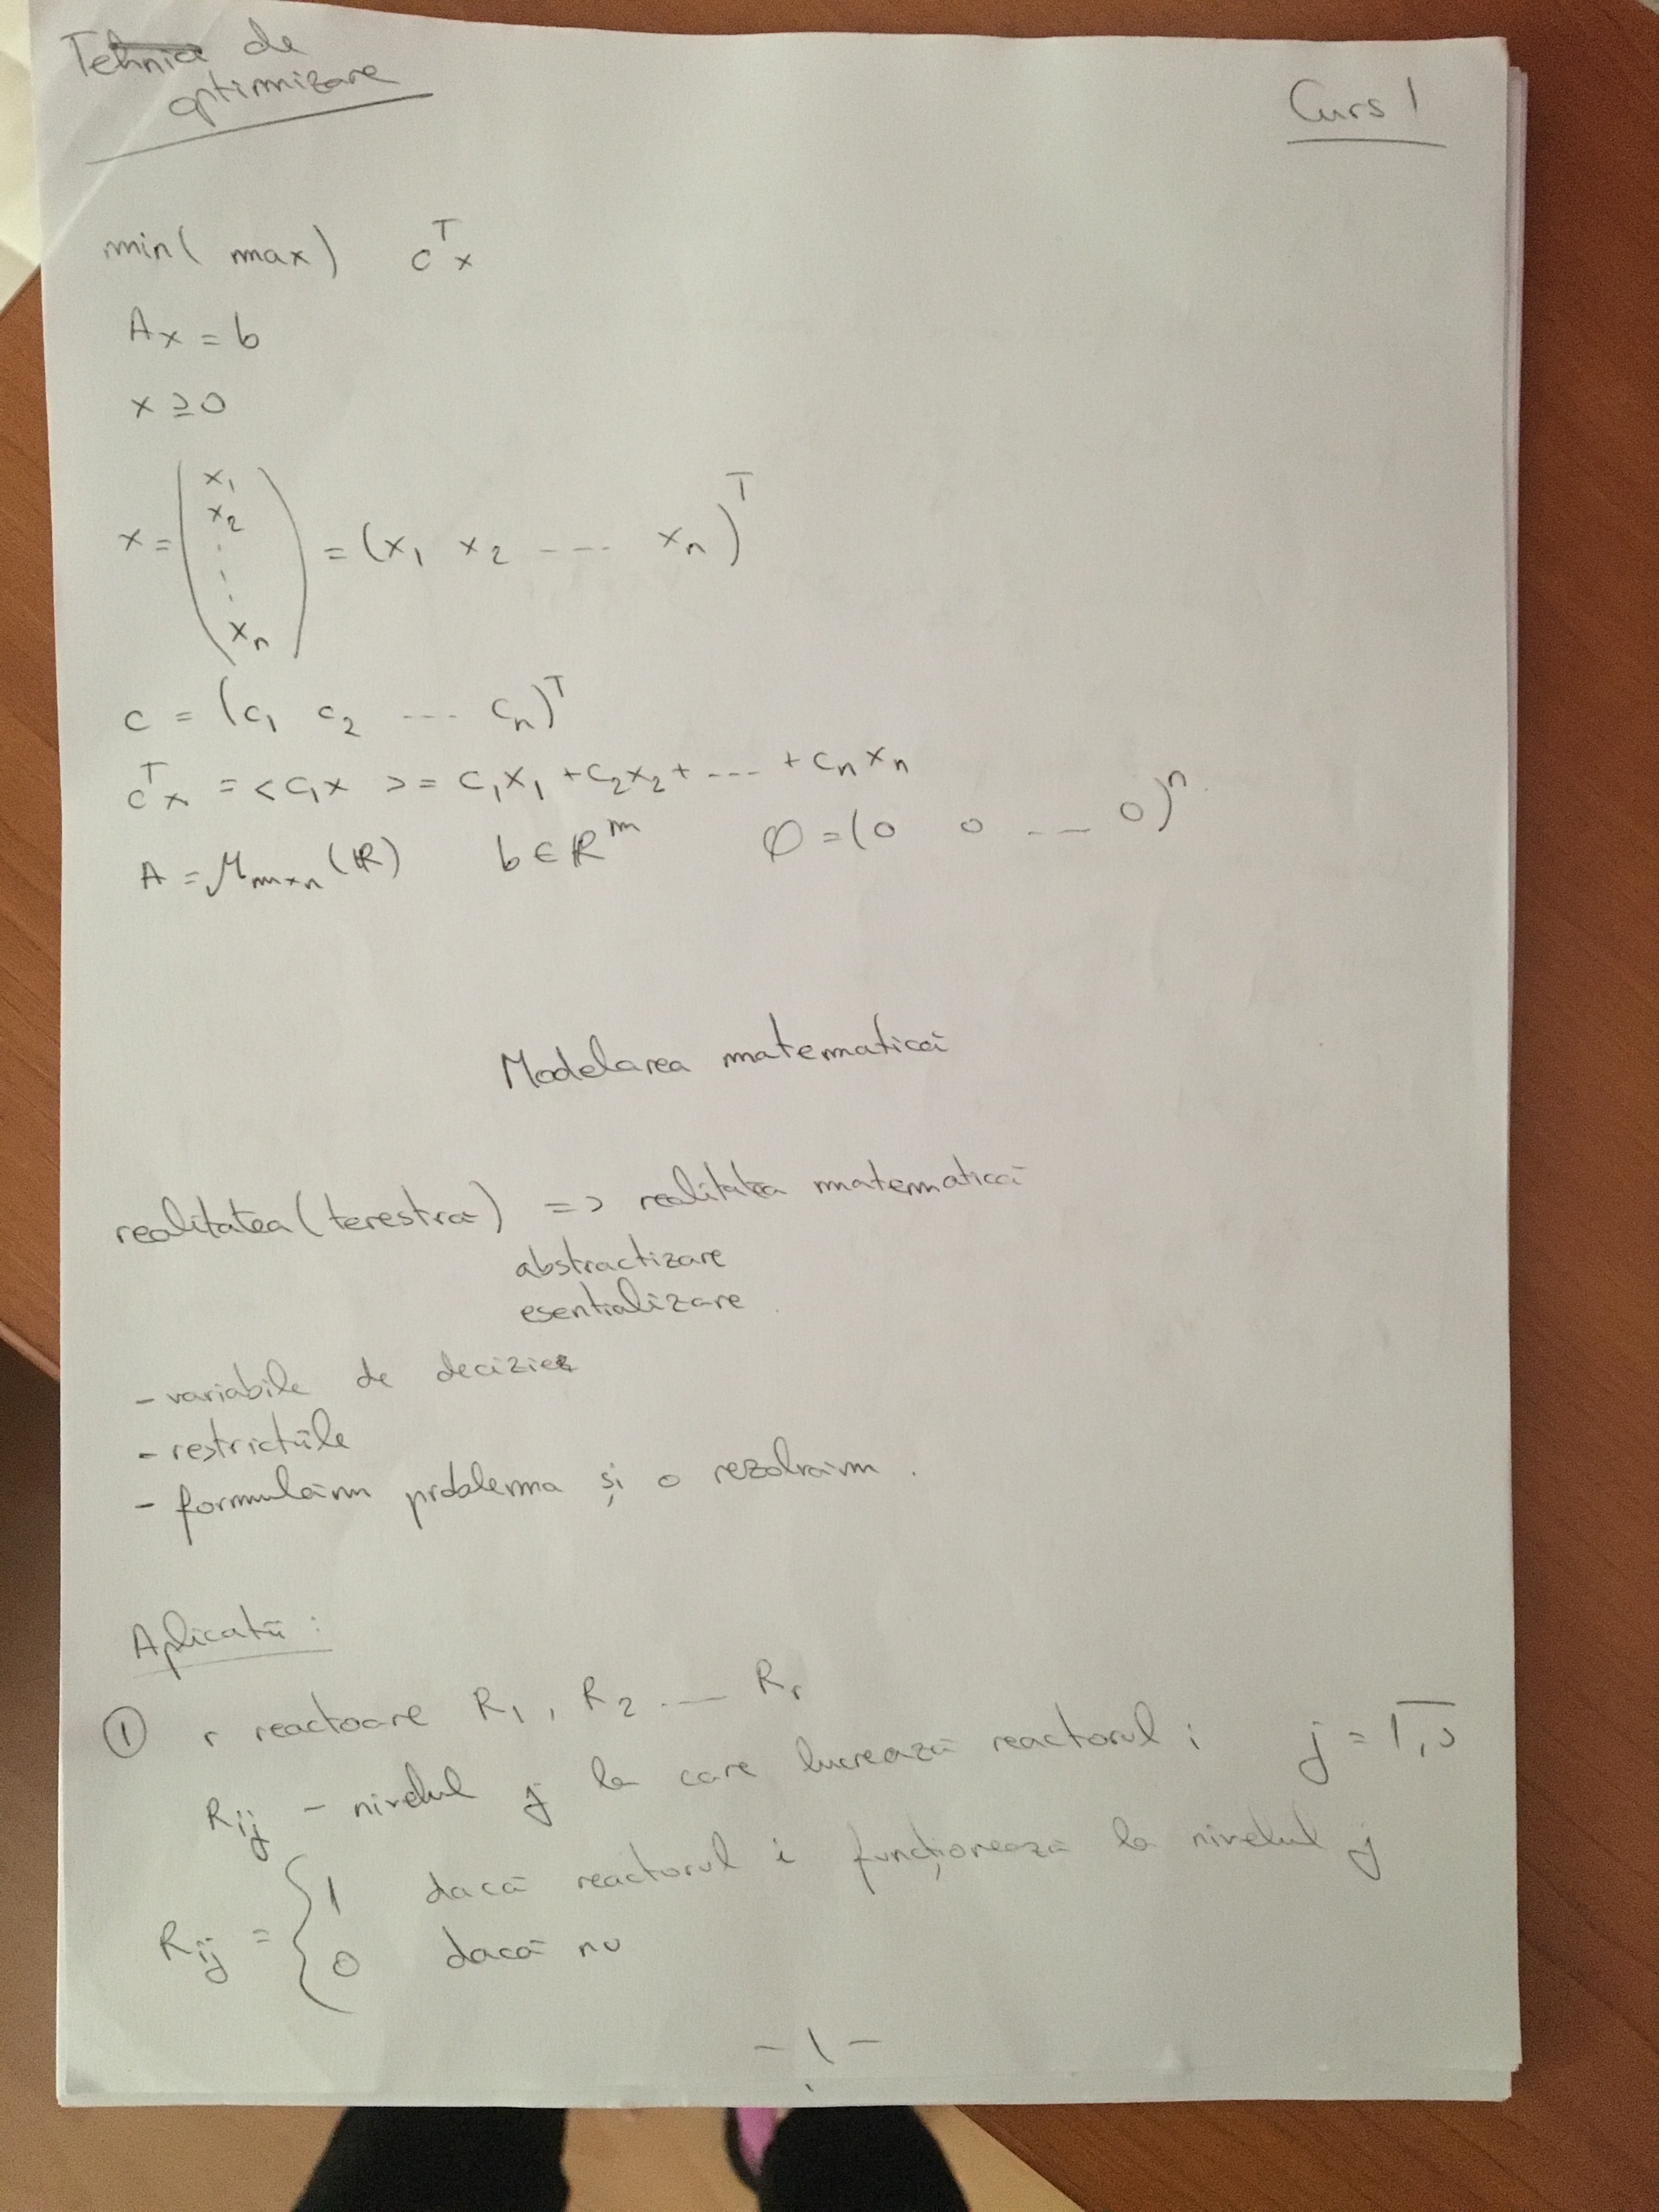 Tehnica de
optimizare
Curs 1
min( max) cᵀx
Ax = b
x ≥ 0
x = (x₁ x₂ ⋮ xₙ) = (x₁ x₂ ---- xₙ)ᵀ
c = (c₁ c₂ --- cₙ)ᵀ
cᵀx = <c,x> = c₁x₁ + c₂x₂ + --- + cₙxₙ
A = Mₘₓₙ(ℝ) b ∈ ℝᵐ O = (0 0 -- 0)ⁿ
Modelarea matematică
realitatea (terestră) => realitatea matematică
abstractizare
esentializare
- variabile de decizie
- restrictiile
- formulăm problema și o rezolvăm.
Aplicatii:
① r reactoare R₁, R₂ .-- Rᵣ
Rᵢⱼ - nivelul j la care lucrează reactorul i j = 1,s
Rᵢⱼ = { 1 dacă reactorul i funcționează la nivelul j
0 dacă nu
- 1 -